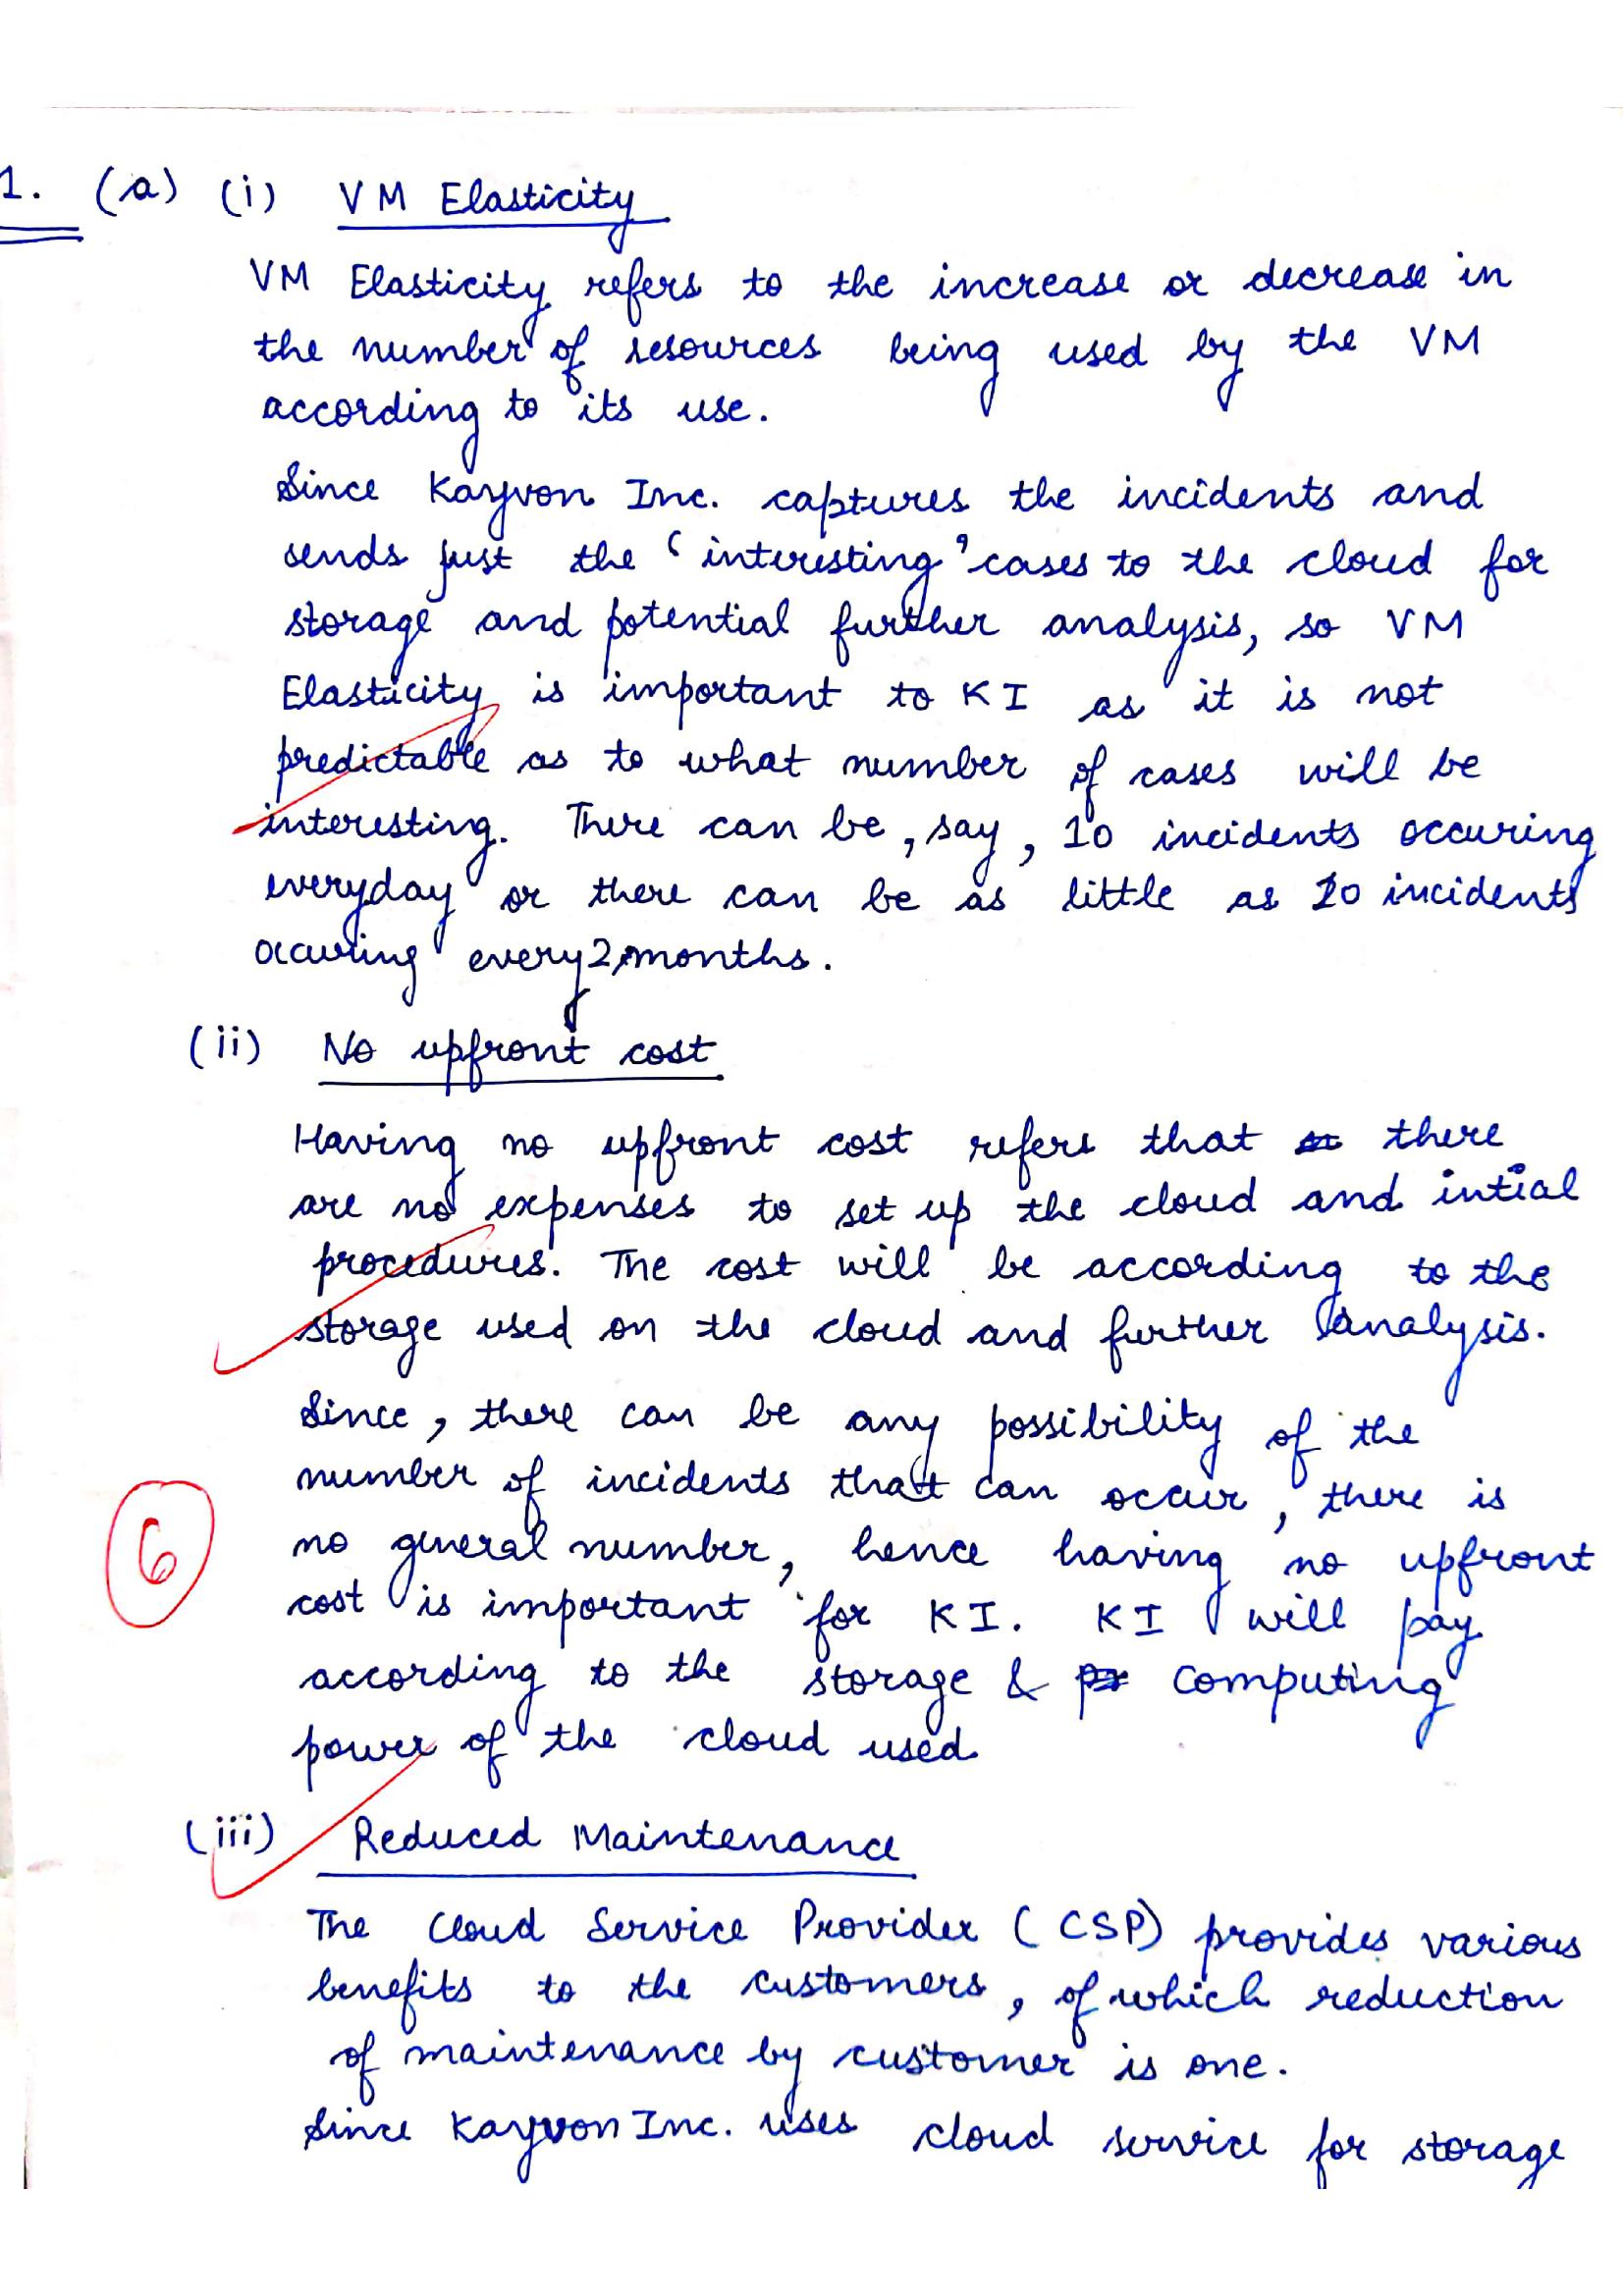 1. (a) (i) VM Elasticity
VM Elasticity refers to the increase or decrease in
the number of resources being used by the VM
according to its use.
Since Kayvon Inc. captures the incidents and
sends just the 'interesting' cases to the cloud for
storage and potential further analysis, so VM
Elasticity is important to KI as it is not
predictable as to what number of cases will be
interesting. There can be, say, 10 incidents occuring
everyday or there can be as little as 10 incidents
occuring every 2 months.
(ii) No upfront cost
Having no upfront cost refers that there
are no expenses to set up the cloud and intial
procedures. The cost will be according to the
storage used on the cloud and further analysis.
Since, there can be any possibility of the
number of incidents that can occur, there is
no general number, hence having no upfront
6
cost is important for KI. KI will pay
according to the storage & computing
power of the cloud used
(iii) Reduced Maintenance
The Cloud Service Provider (CSP) provides various
benefits to the customers, of which reduction
of maintenance by customer is one.
Since Kayvon Inc. uses cloud service for storage